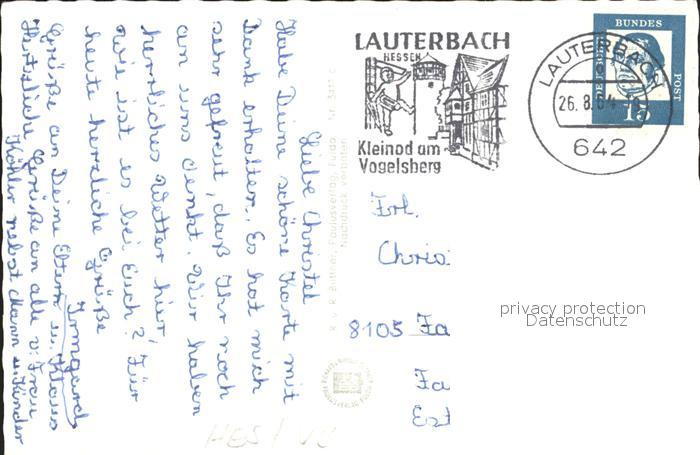 LAUTERBACH
HESSEN
Kleinod am
Vogelsberg
LAUTERBACH
26.8.64
642
DEUTSCHE BUNDESPOST
15
Liebe Christel
Habe Deine schöne Karte mit
Dank erhalten. Es hat mich
sehr gefreut, daß Ihr noch
an uns denkt. Wir haben
herrliches Wetter hier,
wie ist es bei Euch? Für
heute herzliche Grüße
Irmgard
Grüße an Deine Eltern u. Klaus
Herzliche Grüße an alle v. Frau
Köhler nebst Mann u Kinder
Nachdruck verboten
Frl.
Chris
8105 Fa
Fa
Est
privacy protection
Datenschutz